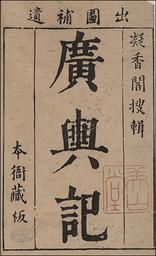 出圖補遺
凝香閣搜輯
廣輿記
本衙藏板